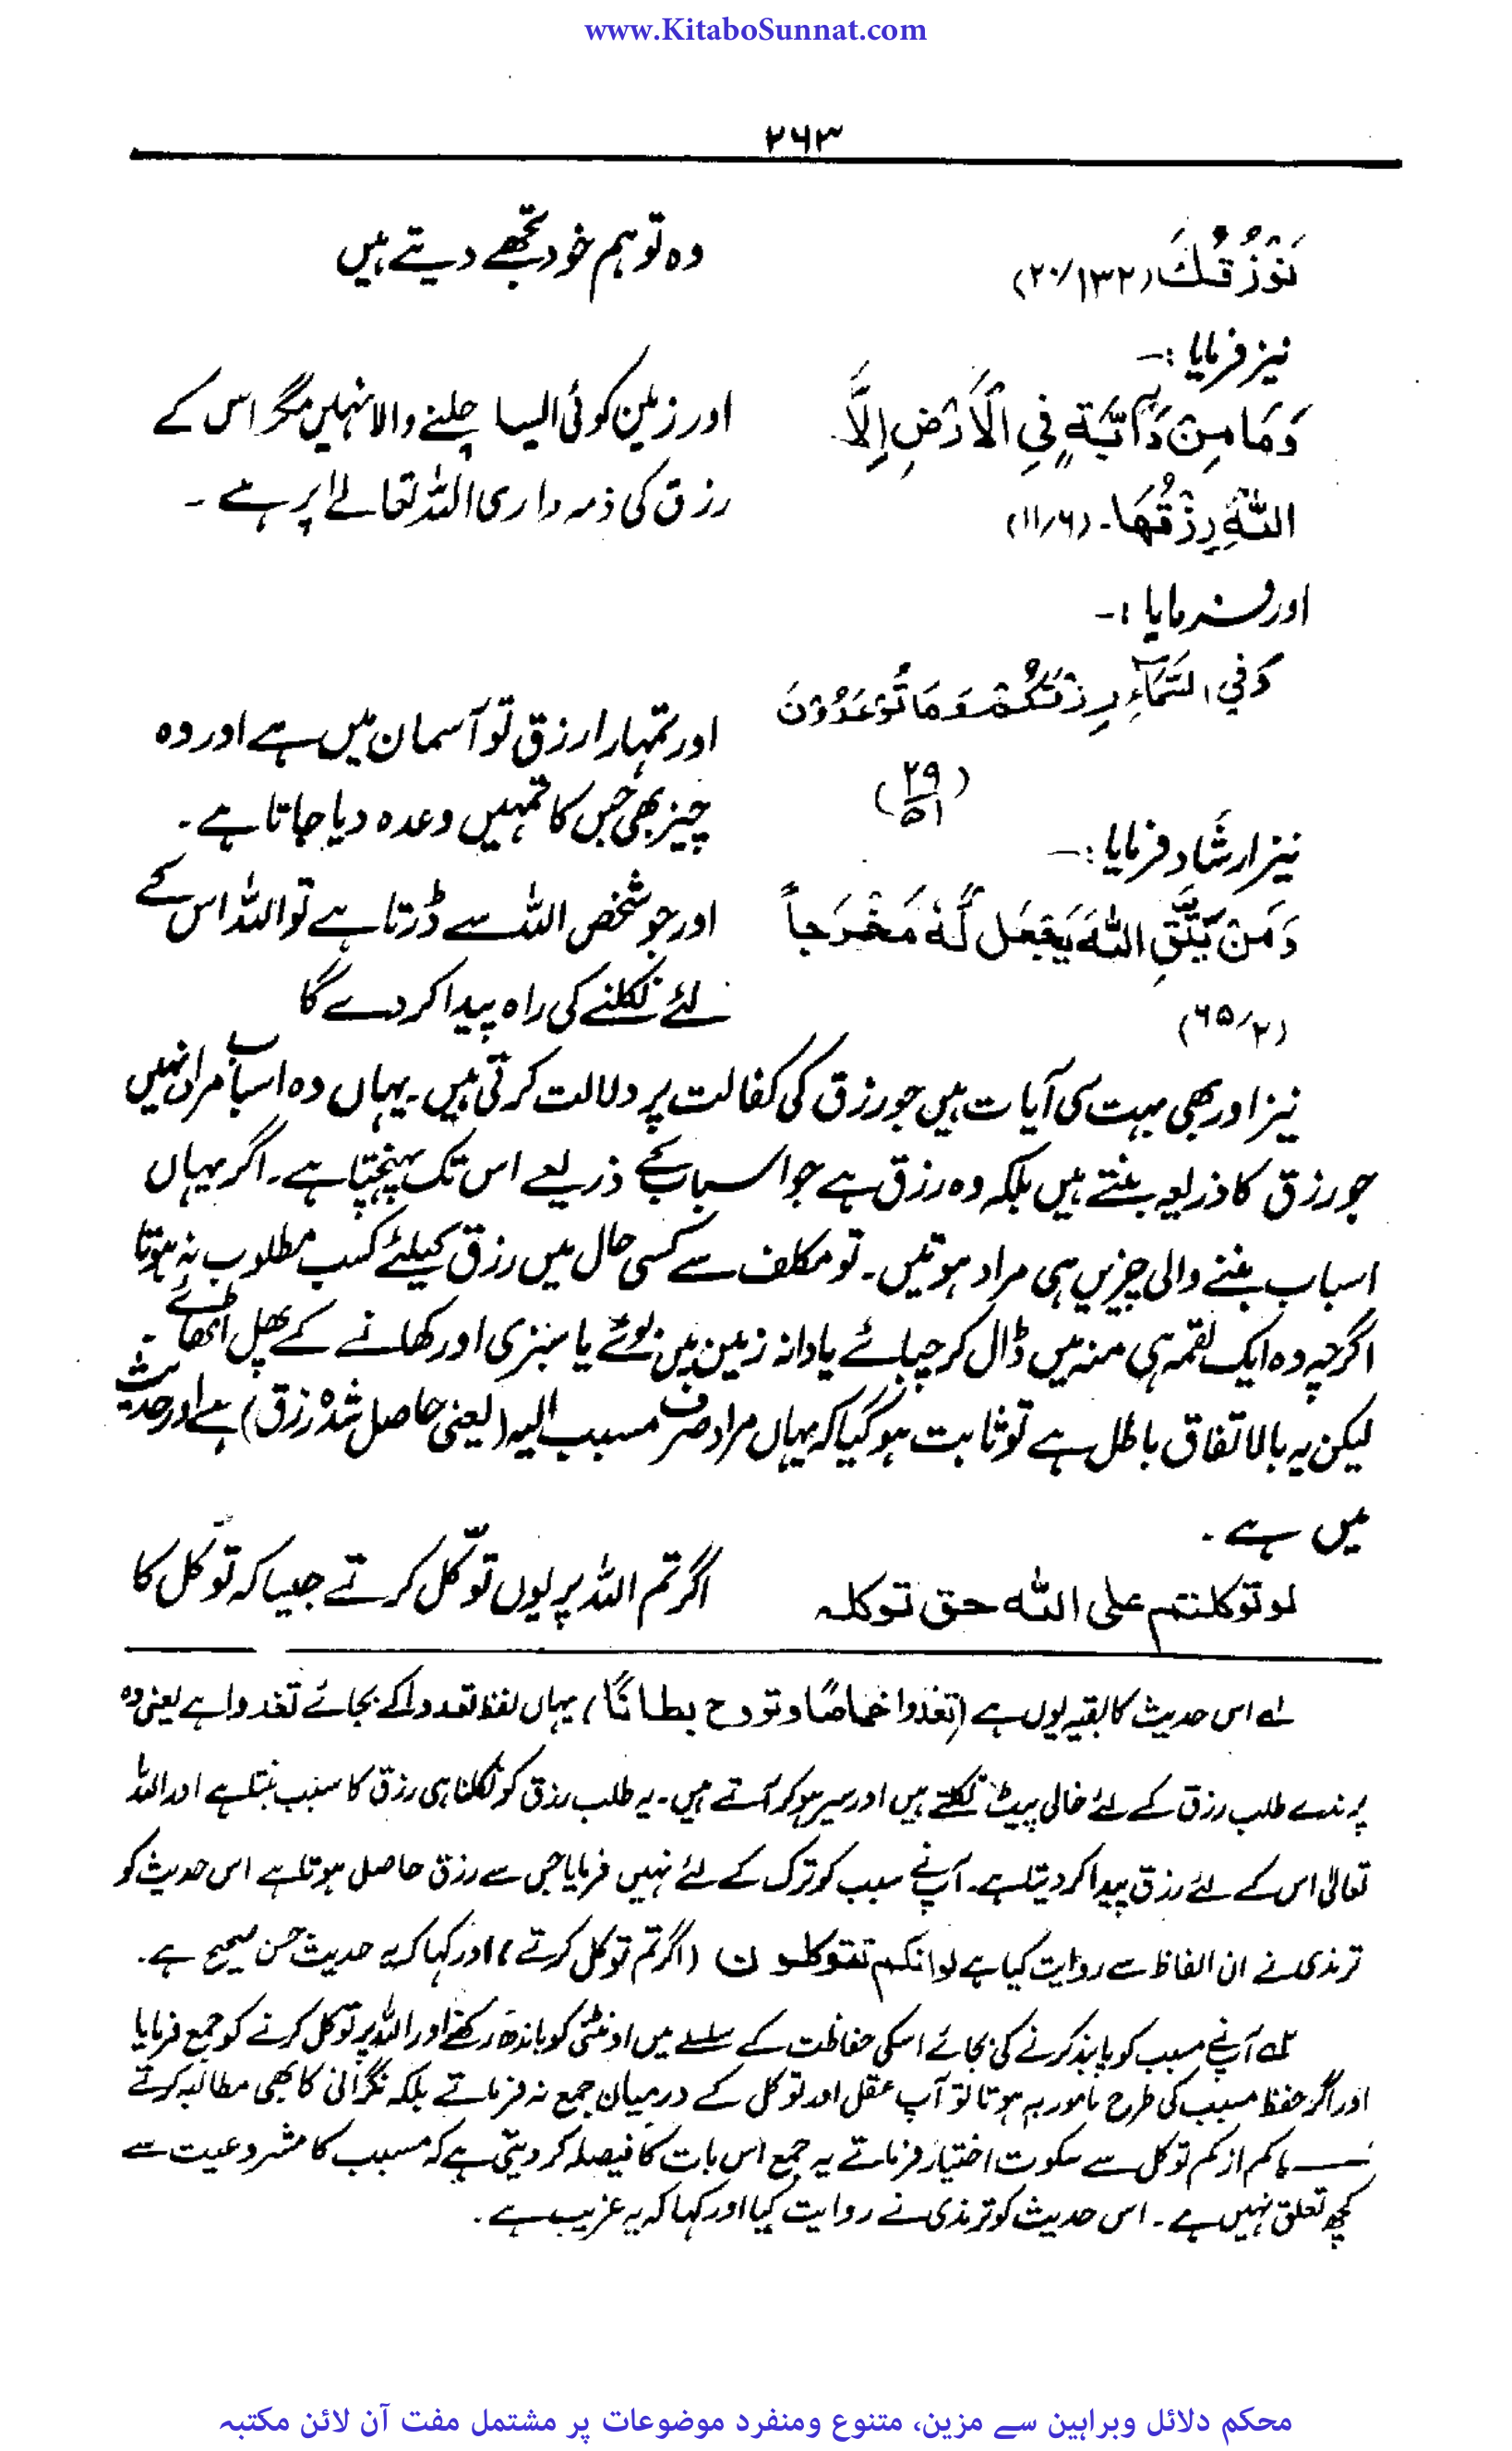 www.KitaboSunnat.com
۲۶۳
نَرْزُقُكَ (۲۰/۱۳۲)
وہ تو ہم خود تجھے دیتے ہیں
نیز فرمایا :-
وَمَا مِنْ دَآبَّةٍ فِي الْأَرْضِ إِلَّا
اور زمین کوئی ایسا چلنے والا نہیں مگر اس کے
اللّٰهِ رِزْقُهَا۔ (۱۱/۶)
رزق کی ذمہ داری اللہ تعالےٰ پر ہے ۔
اور فرمایا :-
وَفِي السَّمَآءِ رِزْقُكُمْ وَمَا تُوْعَدُوْنَ
(۲۹/۵۱)
اور تمہارا رزق تو آسمان میں ہے اور وہ
چیز بھی جس کا تمہیں وعدہ دیا جاتا ہے ۔
نیز ارشاد فرمایا :-
وَمَنْ يَتَّقِ اللّٰهَ يَجْعَل لَّهٗ مَخْرَجاً
(۶۵/۲)
اور جو شخص اللہ سے ڈرتا ہے تو اللہ اس کے
لئے نکلنے کی راہ پیدا کر دے گا
نیز اور بھی بہت سی آیات ہیں جو رزق کی کفالت پر دلالت کرتی ہیں ۔ یہاں وہ اسباب مراد نہیں
جو رزق کا ذریعہ بنتے ہیں بلکہ وہ رزق ہے جو اسباب کے ذریعے اس تک پہنچتا ہے۔ اگر یہاں
اسباب بننے والی چیزیں ہی مراد ہوتیں ۔ تو مکلف سے کسی حال میں رزق کیلئے کسب مطلوب نہ ہوتا
اگرچہ وہ ایک لقمہ ہی منہ میں ڈال کر چبائے یا دانہ زمین میں بوئے یا سبزی اور کھانے کے پھل اٹھائے ۔
لیکن یہ بالاتفاق باطل ہے تو ثابت ہو گیا کہ یہاں مراد صرف مسبب الیہ (یعنی حاصل شدہ رزق) ہے اور حدیث
میں ہے ۔
لو توکلتم علی اللّٰہ حق توکلہ
اگر تم اللہ پر یوں توکّل کرتے جیسا کہ توکل کا
لے اس حدیث کا بقیہ یوں ہے (تغذوا خماصًا و تروح بطانًا) یہاں لفظ تعدوا کے بجائے تغدوا ہے یعنی وہ
پرندے طلب رزق کے لئے خالی پیٹ نکلتے ہیں اور سیر ہو کر آتے ہیں ۔ یہ طلب رزق کو نکلنا ہی رزق کا سبب بنتا ہے اور اللہ
تعالیٰ اس کے لئے رزق پیدا کر دیتا ہے۔ آپ نے سبب کو ترک کے لئے نہیں فرمایا جس سے رزق حاصل ہوتا ہے اس حدیث کو
ترمذی نے ان الفاظ سے روایت کیا ہے لو انکم تتوکلون (اگر تم توکل کرتے) اور کہا کہ یہ حدیث حسن صحیح ہے ۔
ے آپ نے مسبب کو پابند کرنے کی بجائے اسکی حفاظت کے سلسلے میں اونٹنی کو باندھ رکھنے اور اللہ پر توکل کرنے کو جمع فرمایا
اور اگر حفظ مسبب کی طرح مامور بہ ہوتا تو آپ عقل اور توکل کے درمیان جمع نہ فرماتے بلکہ نگرانی کا بھی مطالبہ کرتے
یا کم از کم توکل سے سکوت اختیار فرماتے یہ جمع اس بات کا فیصلہ کر دیتی ہے کہ مسبب کا مشروعیت سے
کچھ تعلق نہیں ہے ۔ اس حدیث کو ترمذی نے روایت کیا اور کہا کہ یہ غریب ہے ۔
محکم دلائل وبراہین سے مزین، متنوع ومنفرد موضوعات پر مشتمل مفت آن لائن مکتبہ